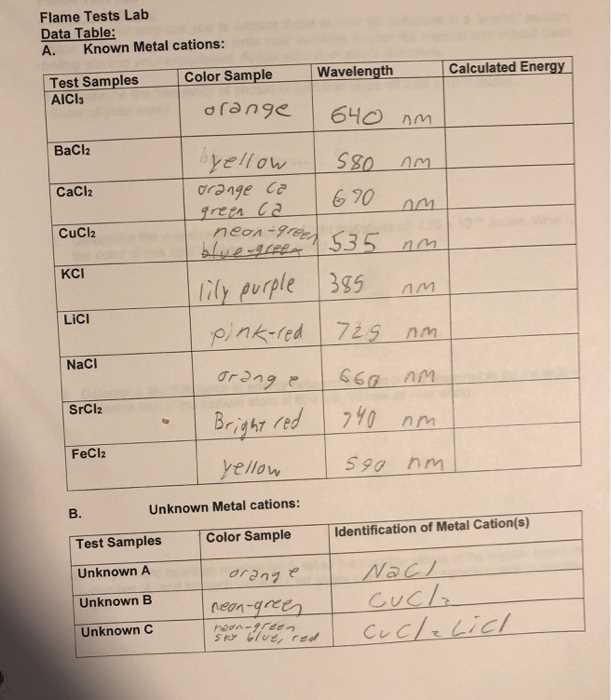 Flame Tests Lab
Data Table:
A. Known Metal cations:
Test Samples Color Sample Wavelength Calculated Energy
AlCl3 orange 640 nm
BaCl2 yellow 580 nm
CaCl2 orange Ca 690 nm
green Ca
CuCl2 neon-green 535 nm
blue-green
KCl lily purple 385 nm
LiCl pink-red 725 nm
NaCl orange 660 nm
SrCl2 Bright red 740 nm
FeCl2 yellow 590 nm
B. Unknown Metal cations:
Test Samples Color Sample Identification of Metal Cation(s)
Unknown A orange NaCl
Unknown B neon-green CuCl2
Unknown C neon-green CuCl2 LiCl
sky blue, red